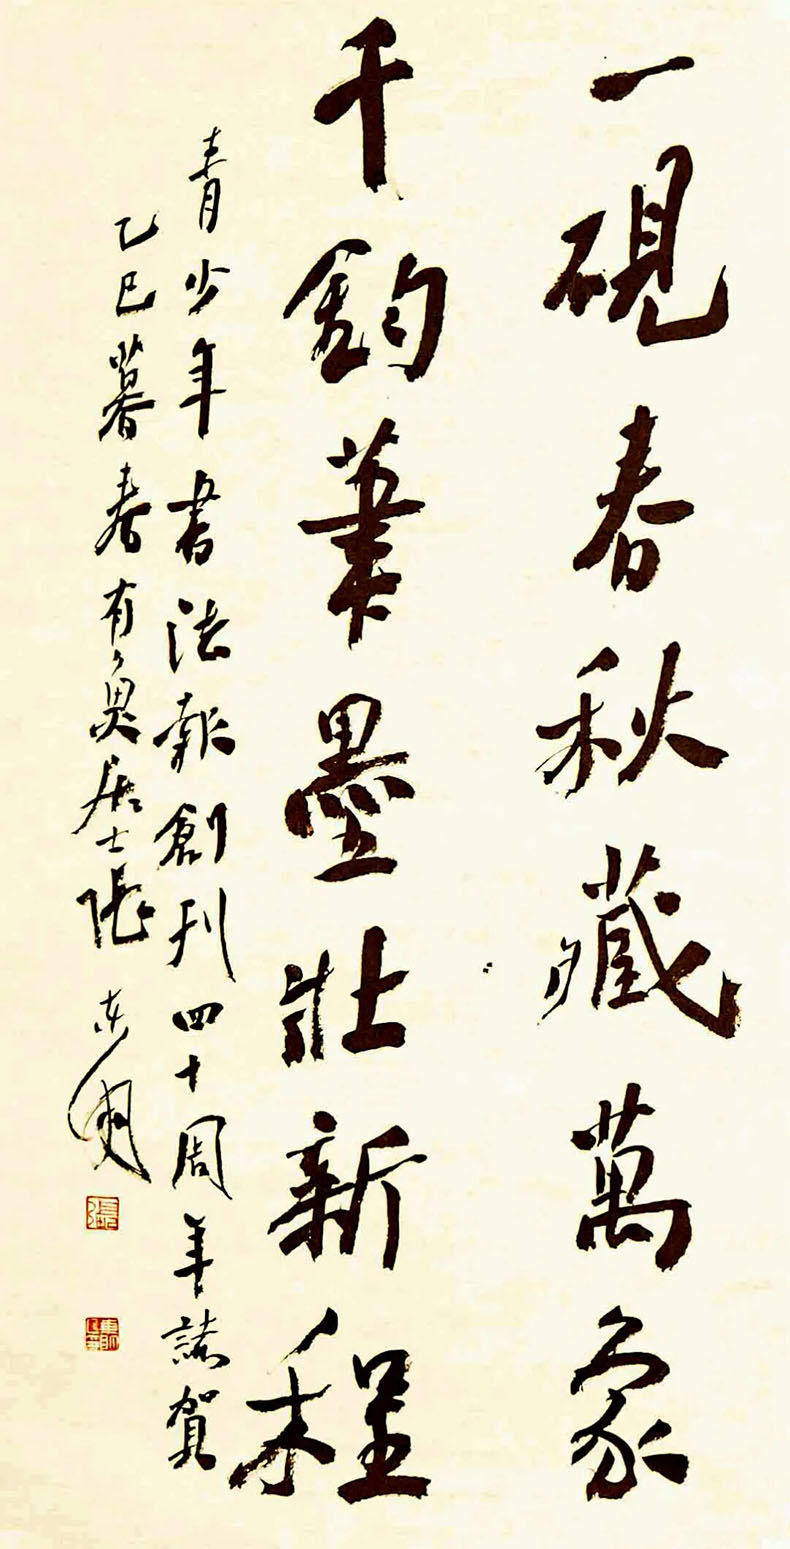 一硯春秋藏萬象
千鈞筆墨壯新程
青少年書法報創刊四十周年誌賀
乙巳暮春有居士張東明
張